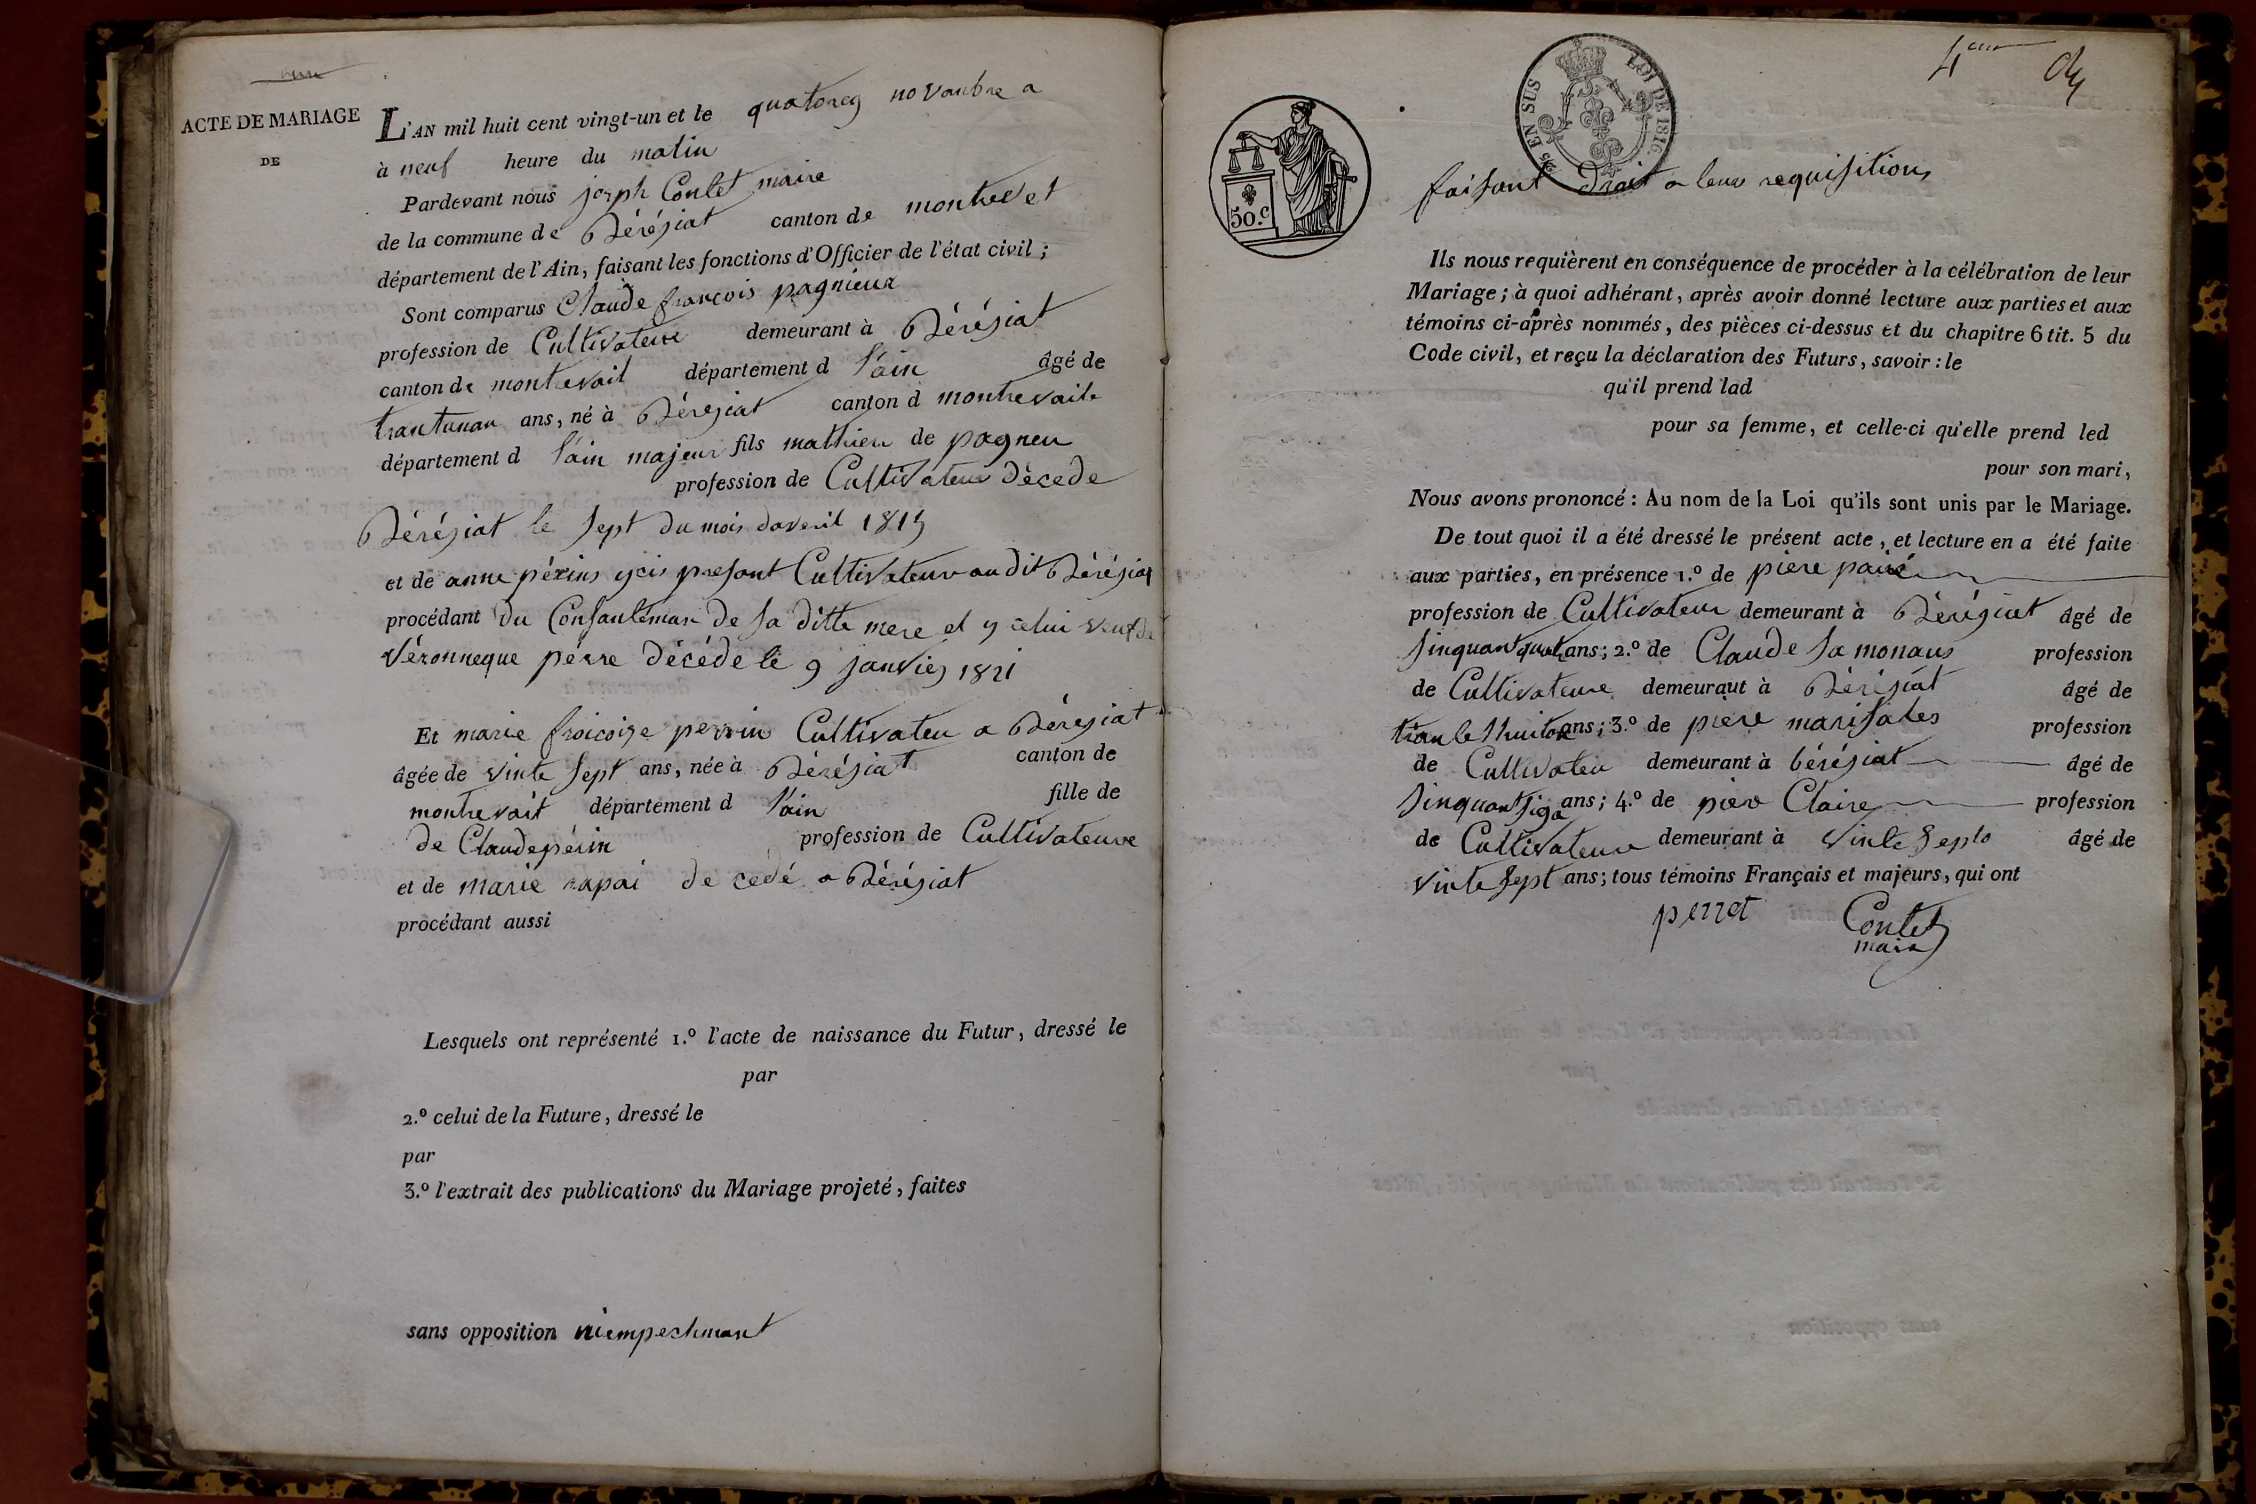 ACTE DE MARIAGE
DE
L'AN mil huit cent vingt-un et le quatorzg novanbre a
à neuf heure du matin
Pardevant nous joseph Contet maire
de la commune de Bérésiat canton de montrevet
département de l'Ain, faisant les fonctions d'Officier de l'état civil ;
Sont comparus Claude françois pagnieux
profession de Cultivateur demeurant à Bérésiat
canton de montrevait département d l'ain âgé de
ans, né à Bérésiat canton d montrevait
département d l'ain majeur fils mathieu de pagneu
profession de Cultivateur Décede
Bérésiat le sept du mois daveril
et de anne périns ycis presant Cultivateur au dit Bérésiat
procédant du Consanteman de sa ditte mere et y celui veuf de
Véronneque pérre Décéde le 9 janvier 1821
Et marie froicoise perrin Cultivateu a Béresiat
âgée de vinte sept ans, née à Bérésiat canton de
montrevait département d l'ain fille de
de Claude périn profession de Cultivateure
et de marie rapai de cédé a Bérésiat
procédant aussi
Lesquels ont représenté 1.º l'acte de naissance du Futur, dressé le
par
2.º celui de la Future, dressé le
par
3.º l'extrait des publications du Mariage projeté, faites
sans opposition niempechmant
4eme
EN SUS LOI DE 1816
50.c
faisant Drait a leur requisitions
Ils nous requièrent en conséquence de procéder à la célébration de leur
Mariage ; à quoi adhérant, après avoir donné lecture aux parties et aux
témoins ci-après nommés, des pièces ci-dessus et du chapitre 6 tit. 5 du
Code civil, et reçu la déclaration des Futurs, savoir : le
qu'il prend lad
pour sa femme, et celle-ci qu'elle prend led
pour son mari,
Nous avons prononcé : Au nom de la Loi qu'ils sont unis par le Mariage.
De tout quoi il a été dressé le présent acte, et lecture en a été faite
aux parties, en présence 1.º de pière
profession de Cultivateur demeurant à Bérégiat âgé de
sinquant quat ans ; 2.º de Claude la monaus profession
de Cultivateure demeurant à Bérésiat âgé de
ans ; 3.º de pière marisales profession
de Cultivateu demeurant à bérésiat âgé de
sinquant siga ans ; 4.º de piere Claire profession
de Cultivateure demeurant à vinte septo âgé de
vinte sept ans ; tous témoins Français et majeurs, qui ont
perret Contet
maire